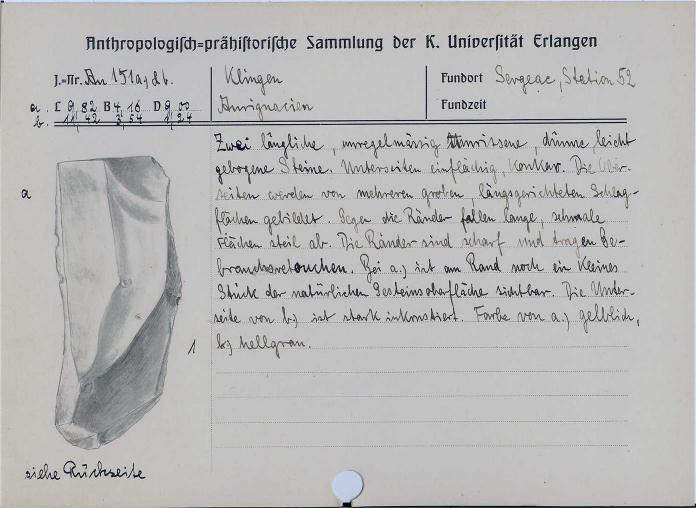 Anthropologisch=prähistorische Sammlung der K. Universität Erlangen
J.=Nr. An 151a, & b.
Klingen
Aurignacien
Fundort Sergeac, Station 52
Fundzeit
a. L 9,82 B 4,16 D 0,00
b. 11,42 3,54 1,24
a
Zwei längliche, unregelmässig umrissene, dünne, leicht
gebogene Steine. Unterseiten einflächig, konkav. Die Ober-
seiten werden von mehreren groben, längsgerichteten Schlag-
flächen gebildet. Gegen die Ränder fallen lange, schmale
Flächen steil ab. Die Ränder sind scharf und tragen Ge-
brauchsretouchen. Bei a.) ist am Rand noch ein kleines
Stück der natürlichen Gesteinsoberfläche sichtbar. Die Unter-
seite von b) ist stark inkrustiert. Farbe von a.) gelblich,
b) hellgrau.
1
siehe Rückseite